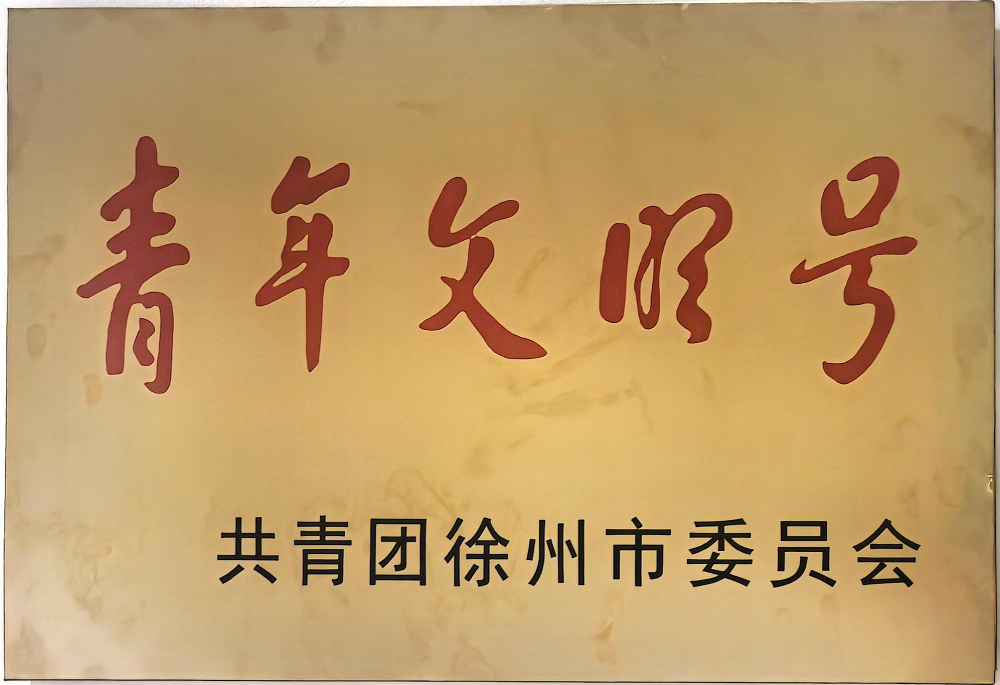 青年文明号
共青团徐州市委员会